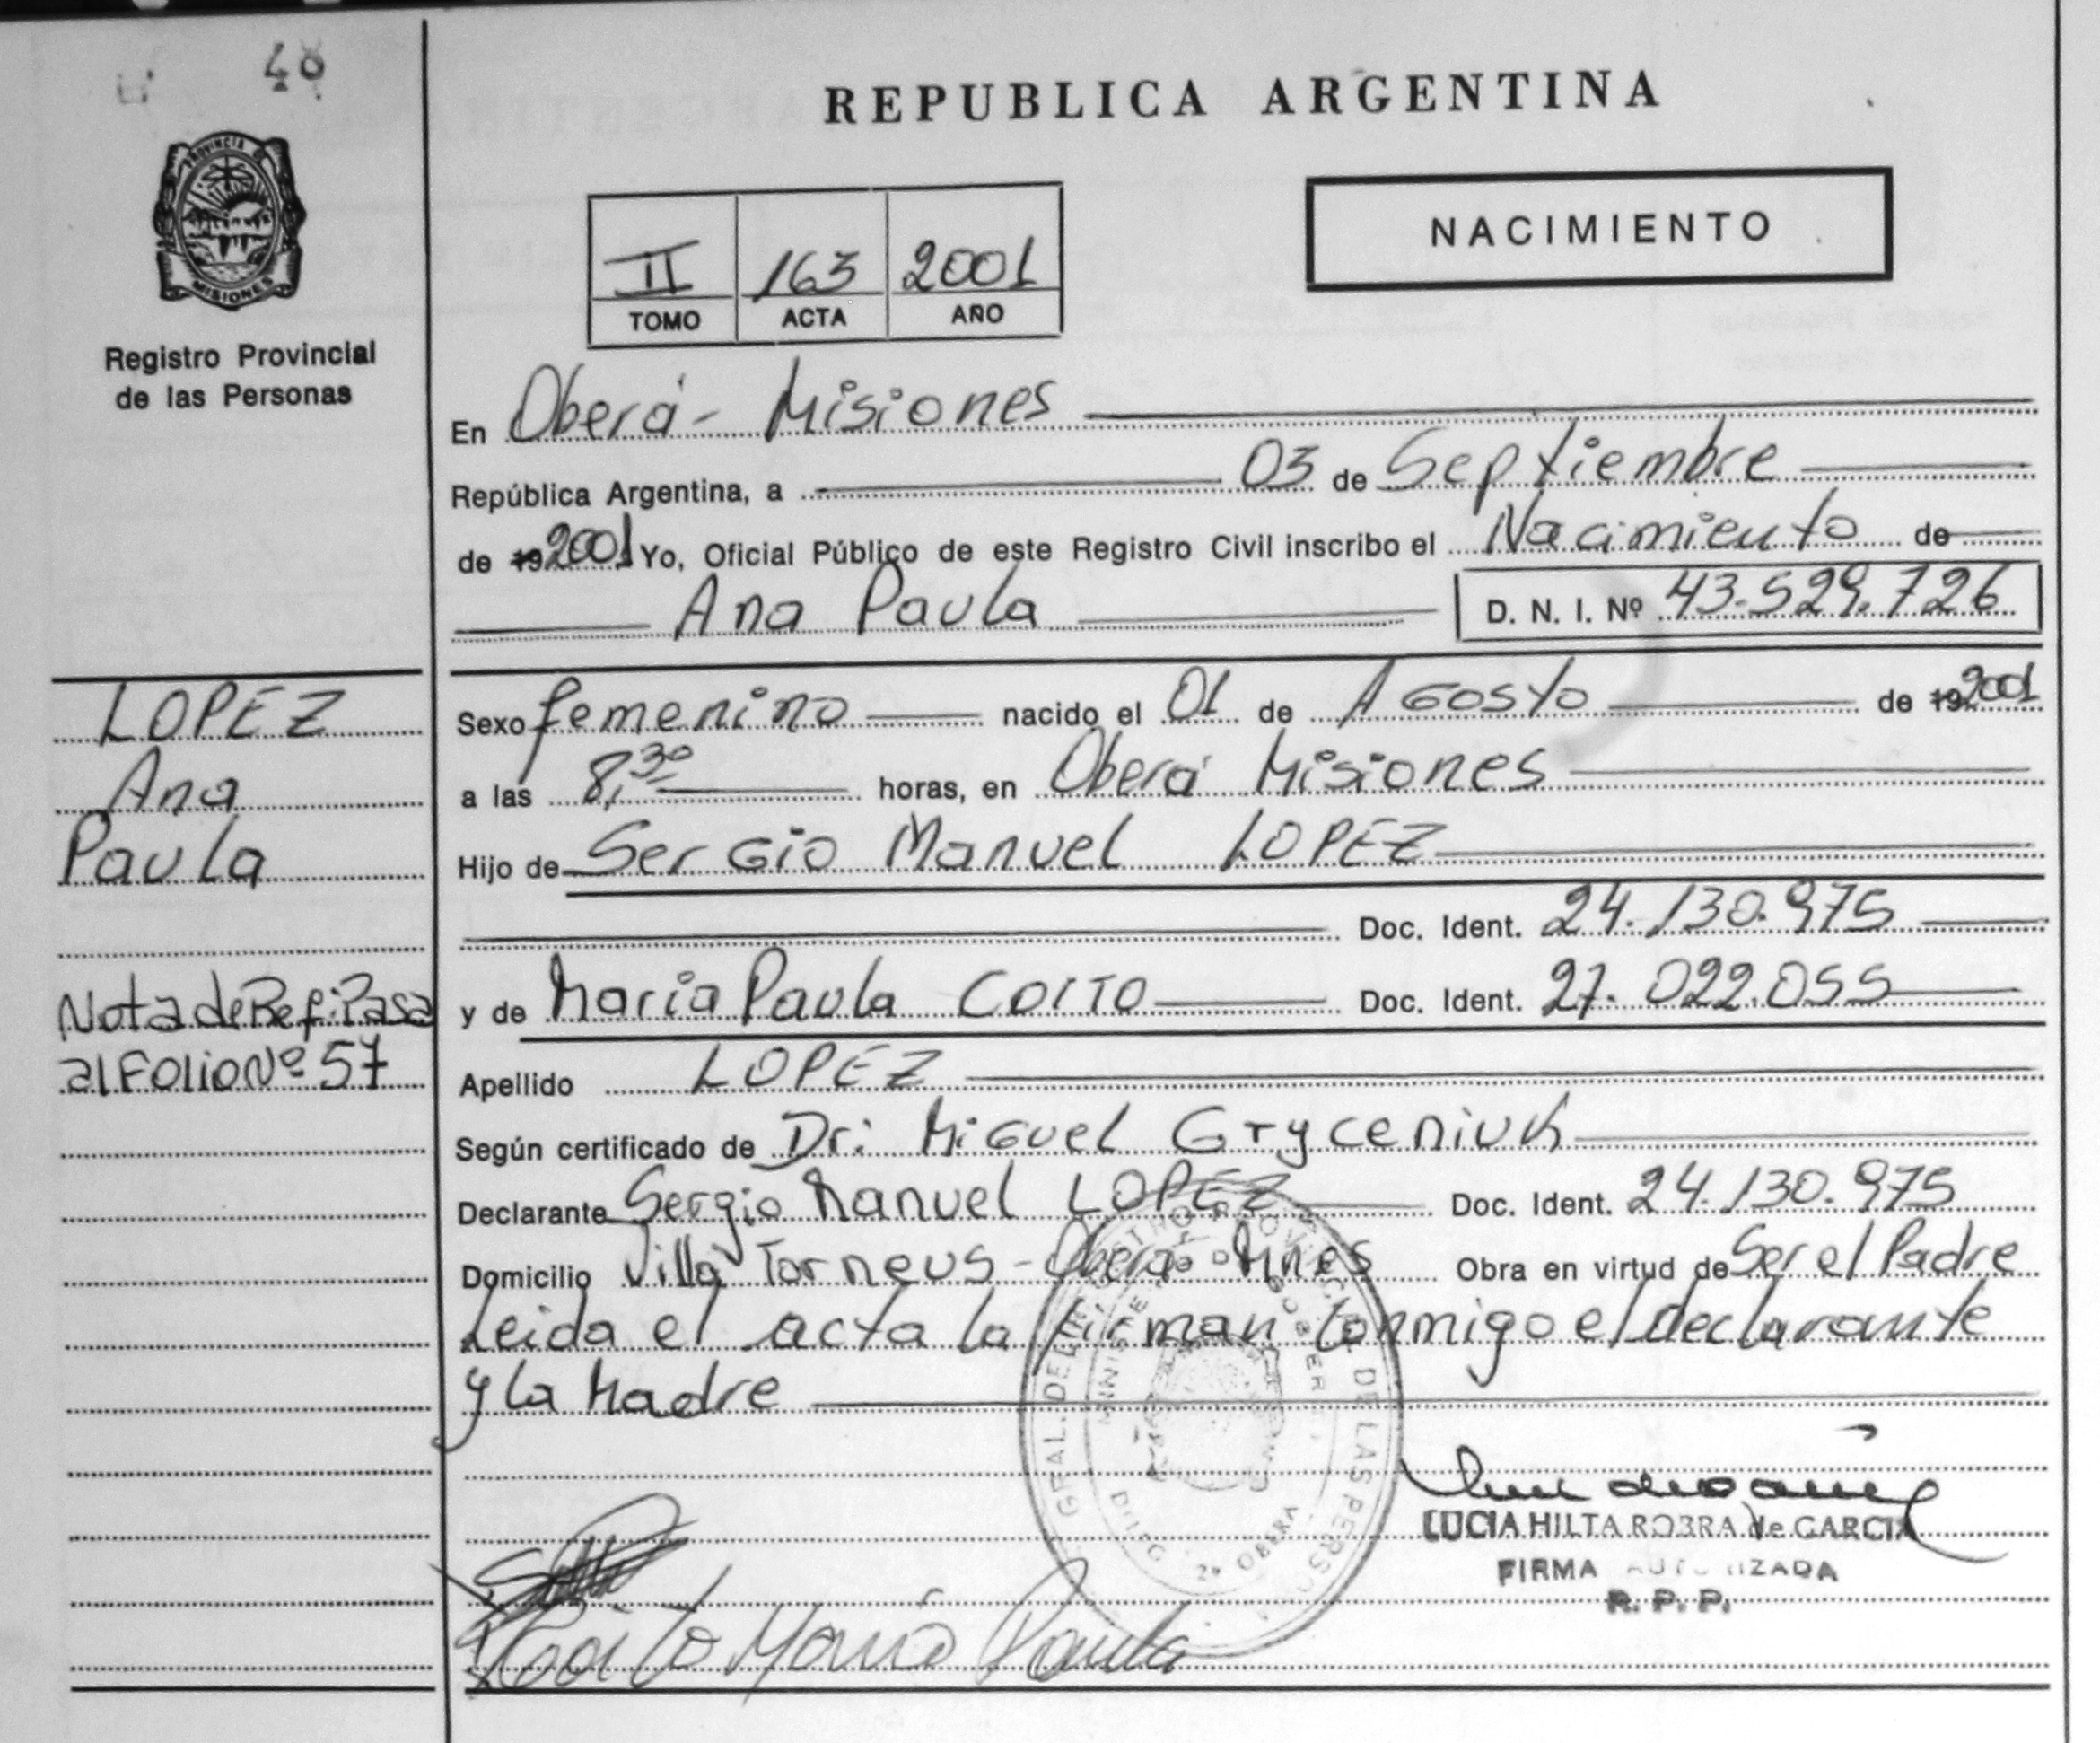 48
REPUBLICA ARGENTINA
NACIMIENTO
PROVINCIA DE
MISIONES
Registro Provincial
de las Personas
II 163 2001
TOMO ACTA AÑO
En Oberá - Misiones
República Argentina, a 03 de Septiembre
de 19 2001 Yo, Oficial Público de este Registro Civil inscribo el Nacimiento de
Ana Paula D. N. I. Nº 43.529.726
LOPEZ
Ana
Paula
Nota de Ref: Pasa
al Folio Nº 57
Sexo femenino nacido el 01 de Agosto de 19 2001
a las 8,30 horas, en Oberá Misiones
Hijo de Sergio Manuel LOPEZ
Doc. Ident. 24.130.975
y de Maria Paula Coito Doc. Ident. 27.022.055
Apellido LOPEZ
Según certificado de Dr: Miguel Gryceniuk
Declarante Sergio Manuel LOPEZ Doc. Ident. 24.130.975
Domicilio Villa Torneus - Oberá Mnes Obra en virtud de Ser el Padre
Leida el acta la firman conmigo el declarante
y la Madre
LUCIA HILTA ROBRA de GARCIA
FIRMA AUTORIZADA
R. P. P.
Coito María Paula